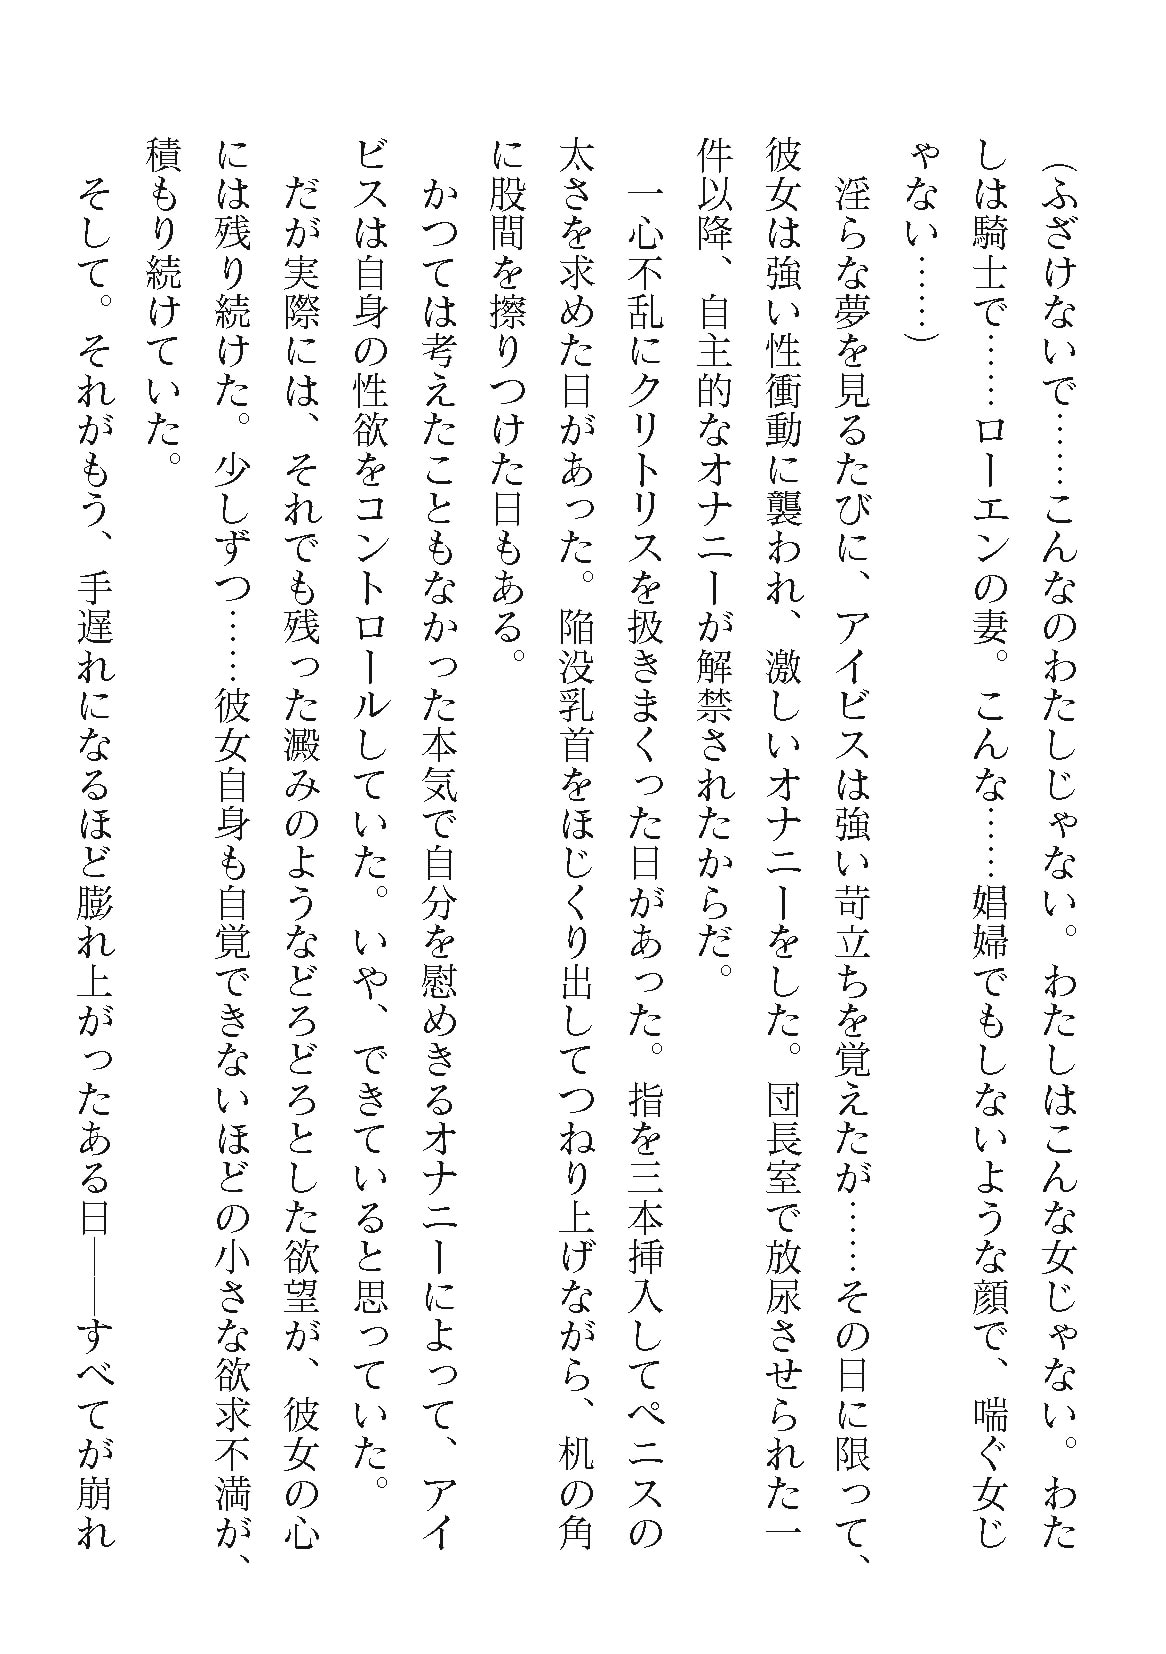 (ふざけないで……こんなのわたしじゃない。わたしはこんな女じゃない。わた
しは騎士で……ローエンの妻。こんな……娼婦でもしないような顔で、喘ぐ女じ
ゃない……)
　淫らな夢を見るたびに、アイビスは強い苛立ちを覚えたが……その日に限って、
彼女は強い性衝動に襲われ、激しいオナニーをした。団長室で放尿させられた一
件以降、自主的なオナニーが解禁されたからだ。
　一心不乱にクリトリスを扱きまくった日があった。指を三本挿入してペニスの
太さを求めた日があった。陥没乳首をほじくり出してつねり上げながら、机の角
に股間を擦りつけた日もある。
　かつては考えたこともなかった本気で自分を慰めきるオナニーによって、アイ
ビスは自身の性欲をコントロールしていた。いや、できていると思っていた。
　だが実際には、それでも残った澱みのようなどろどろとした欲望が、彼女の心
には残り続けた。少しずつ……彼女自身も自覚できないほどの小さな欲求不満が、
積もり続けていた。
　そして。それがもう、手遅れになるほど膨れ上がったある日――すべてが崩れ